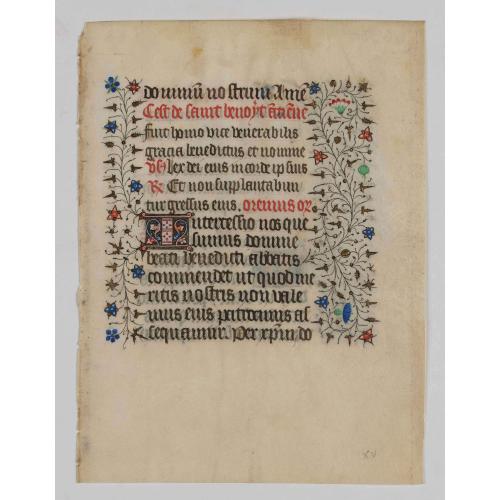 dominū nostrum Amē
Cest de saint benoyt ātiēne
fuit homo vite venerabilis
gracia benedictus et nomine
Vs̄ lex dei eius in corde ipsius
R̄ Et non supplantabun
tur gressus eius. oremus or̄
Intercessio nos que
sumus domine
beati benedicti abbatis
commendet ut quod me
ritis nostris non vale
mus eius patrocinio as
sequamur. Per xp̄m do
xv